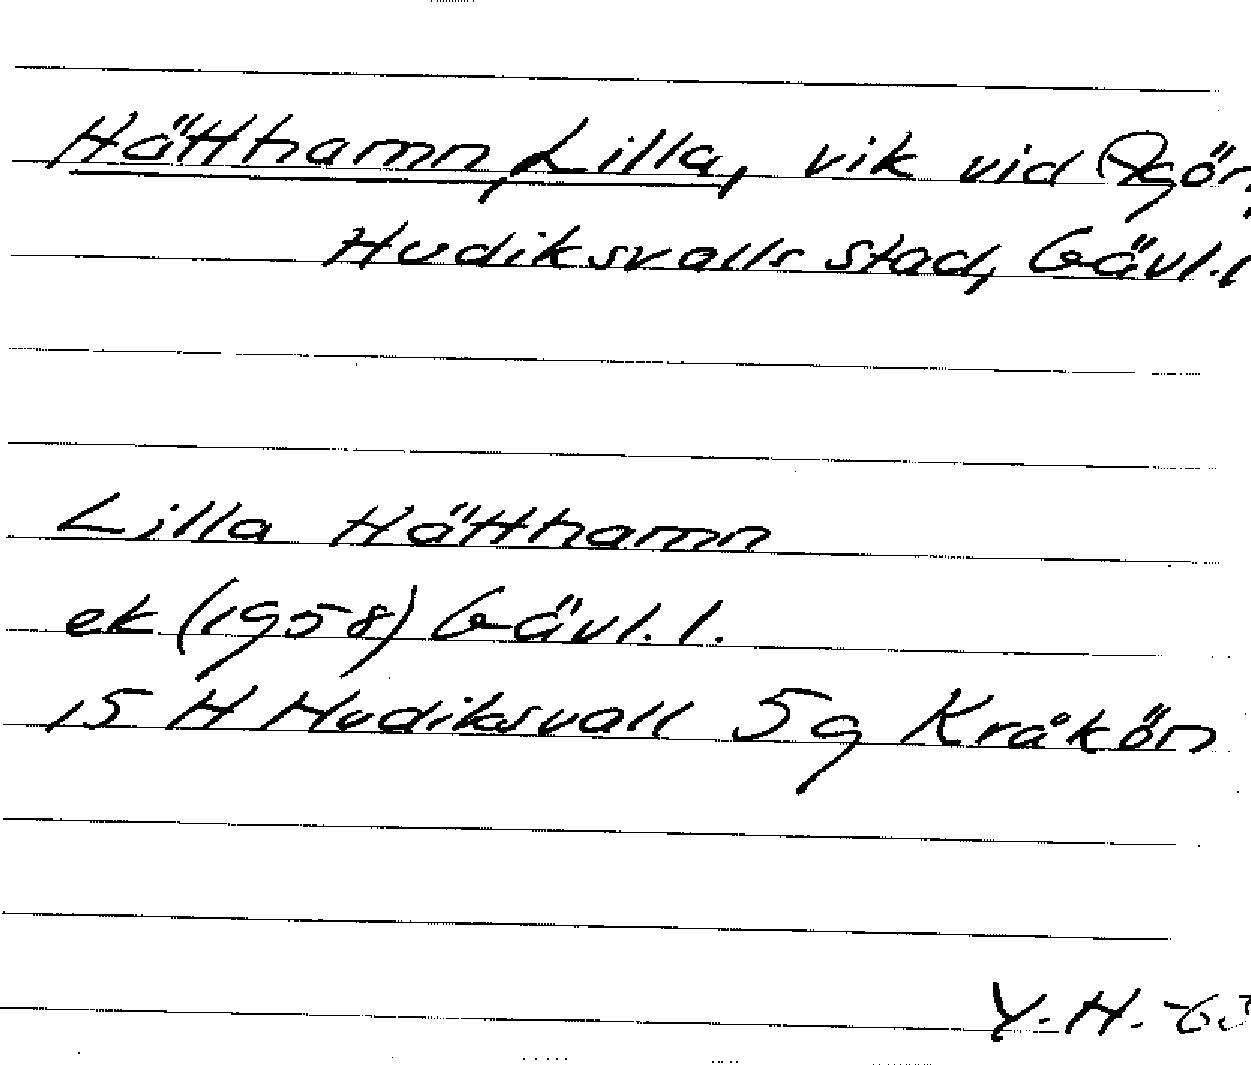 Hätthamn, Lilla, vik vid
Hudiksvalls stad, Gävl.l
Lilla Hätthamn
ek (1958) Gävl. l.
15 H Hudiksvall 5g Kråkön
Y.H. -63